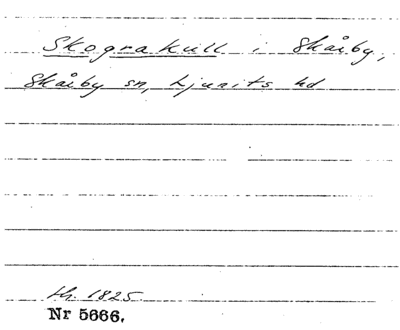 Skograkull i Skårby,
Skårby sn, Ljunits hd
th. 1825
Nr 5666.